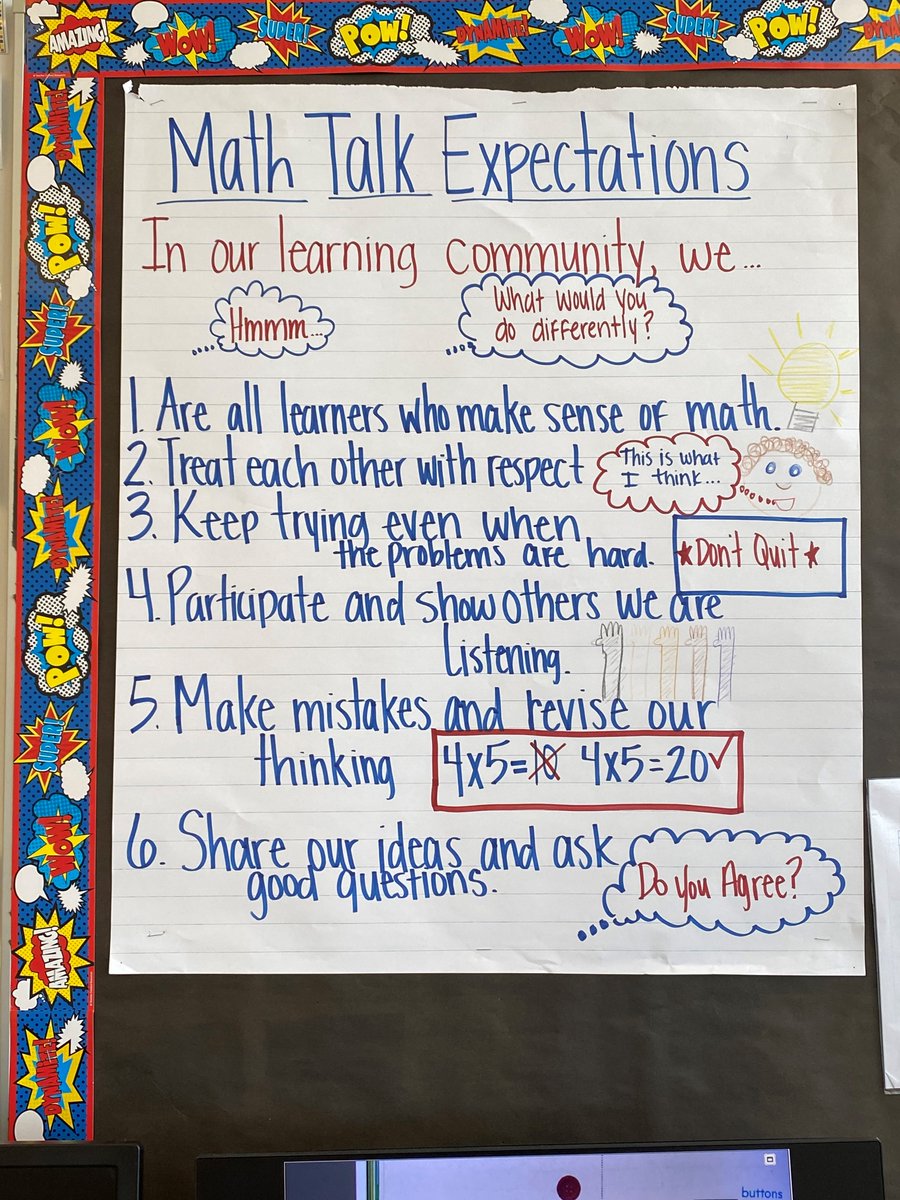 AMAZING! WOW! SUPER! POW! DYNAMITE! WOW! SUPER! POW! DYNAMITE!
DYNAMITE!
POW!
SUPER!
WOW!
DYNAMITE!
POW!
SUPER!
WOW!
AMAZING!
DYNAMITE!
Math Talk Expectations
In our learning community, we...
Hmmm...
What would you
do differently?
1. Are all learners who make sense of math.
2. Treat each other with respect
This is what
I think...
3. Keep trying even when
the problems are hard.
★Don't Quit★
4. Participate and show others we are
Listening.
5. Make mistakes and revise our
thinking
4x5=10 4x5=20✓
6. Share our ideas and ask
good questions.
Do you Agree?
buttons